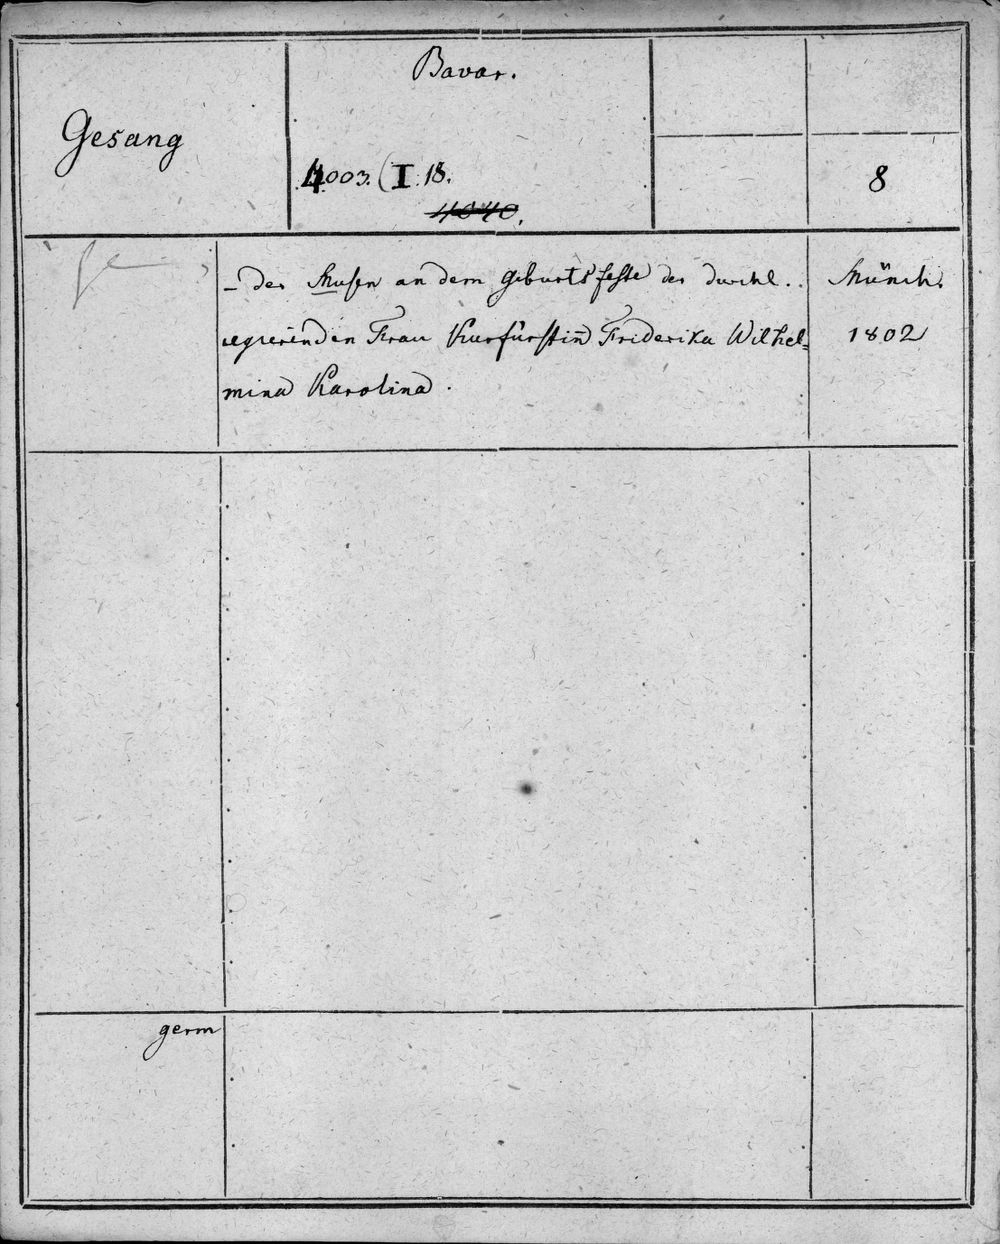 Bavar.
Gesang
4003. (I. 18.
4040.
8
– der Musen an dem Geburtsfeste der durchl..
regierenden Frau Kurfürstin Friderika Wilhel=
mina Karolina.
Münch.
1802
germ